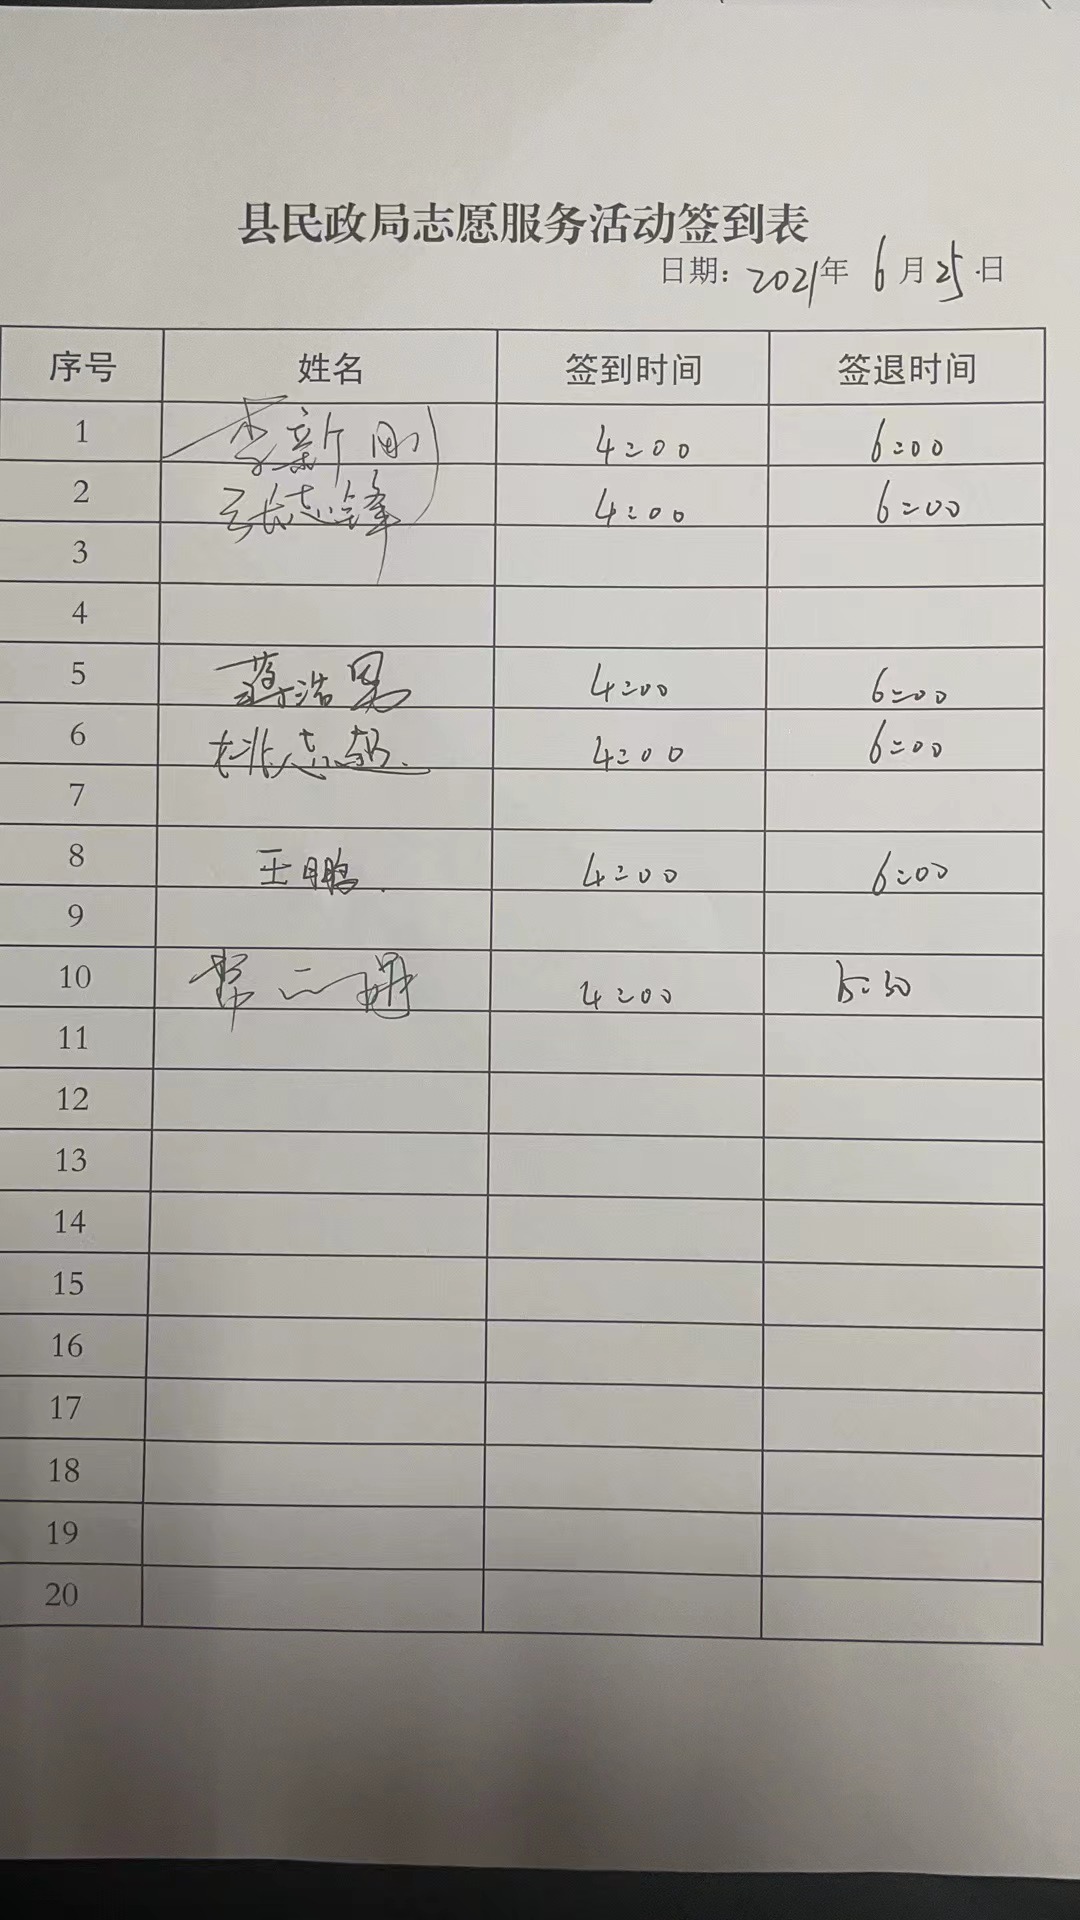 县民政局志愿服务活动签到表
日期: 2021年 6月25日
序号 姓名 签到时间 签退时间
1 李新刚 4:00 6:00
2 张志锋 4:00 6:00
3
4
5 蒋浩男 4:00 6:00
6 姚志超 4:00 6:00
7
8 王鹏 4:00 6:00
9
10 4:00 5:30
11
12
13
14
15
16
17
18
19
20